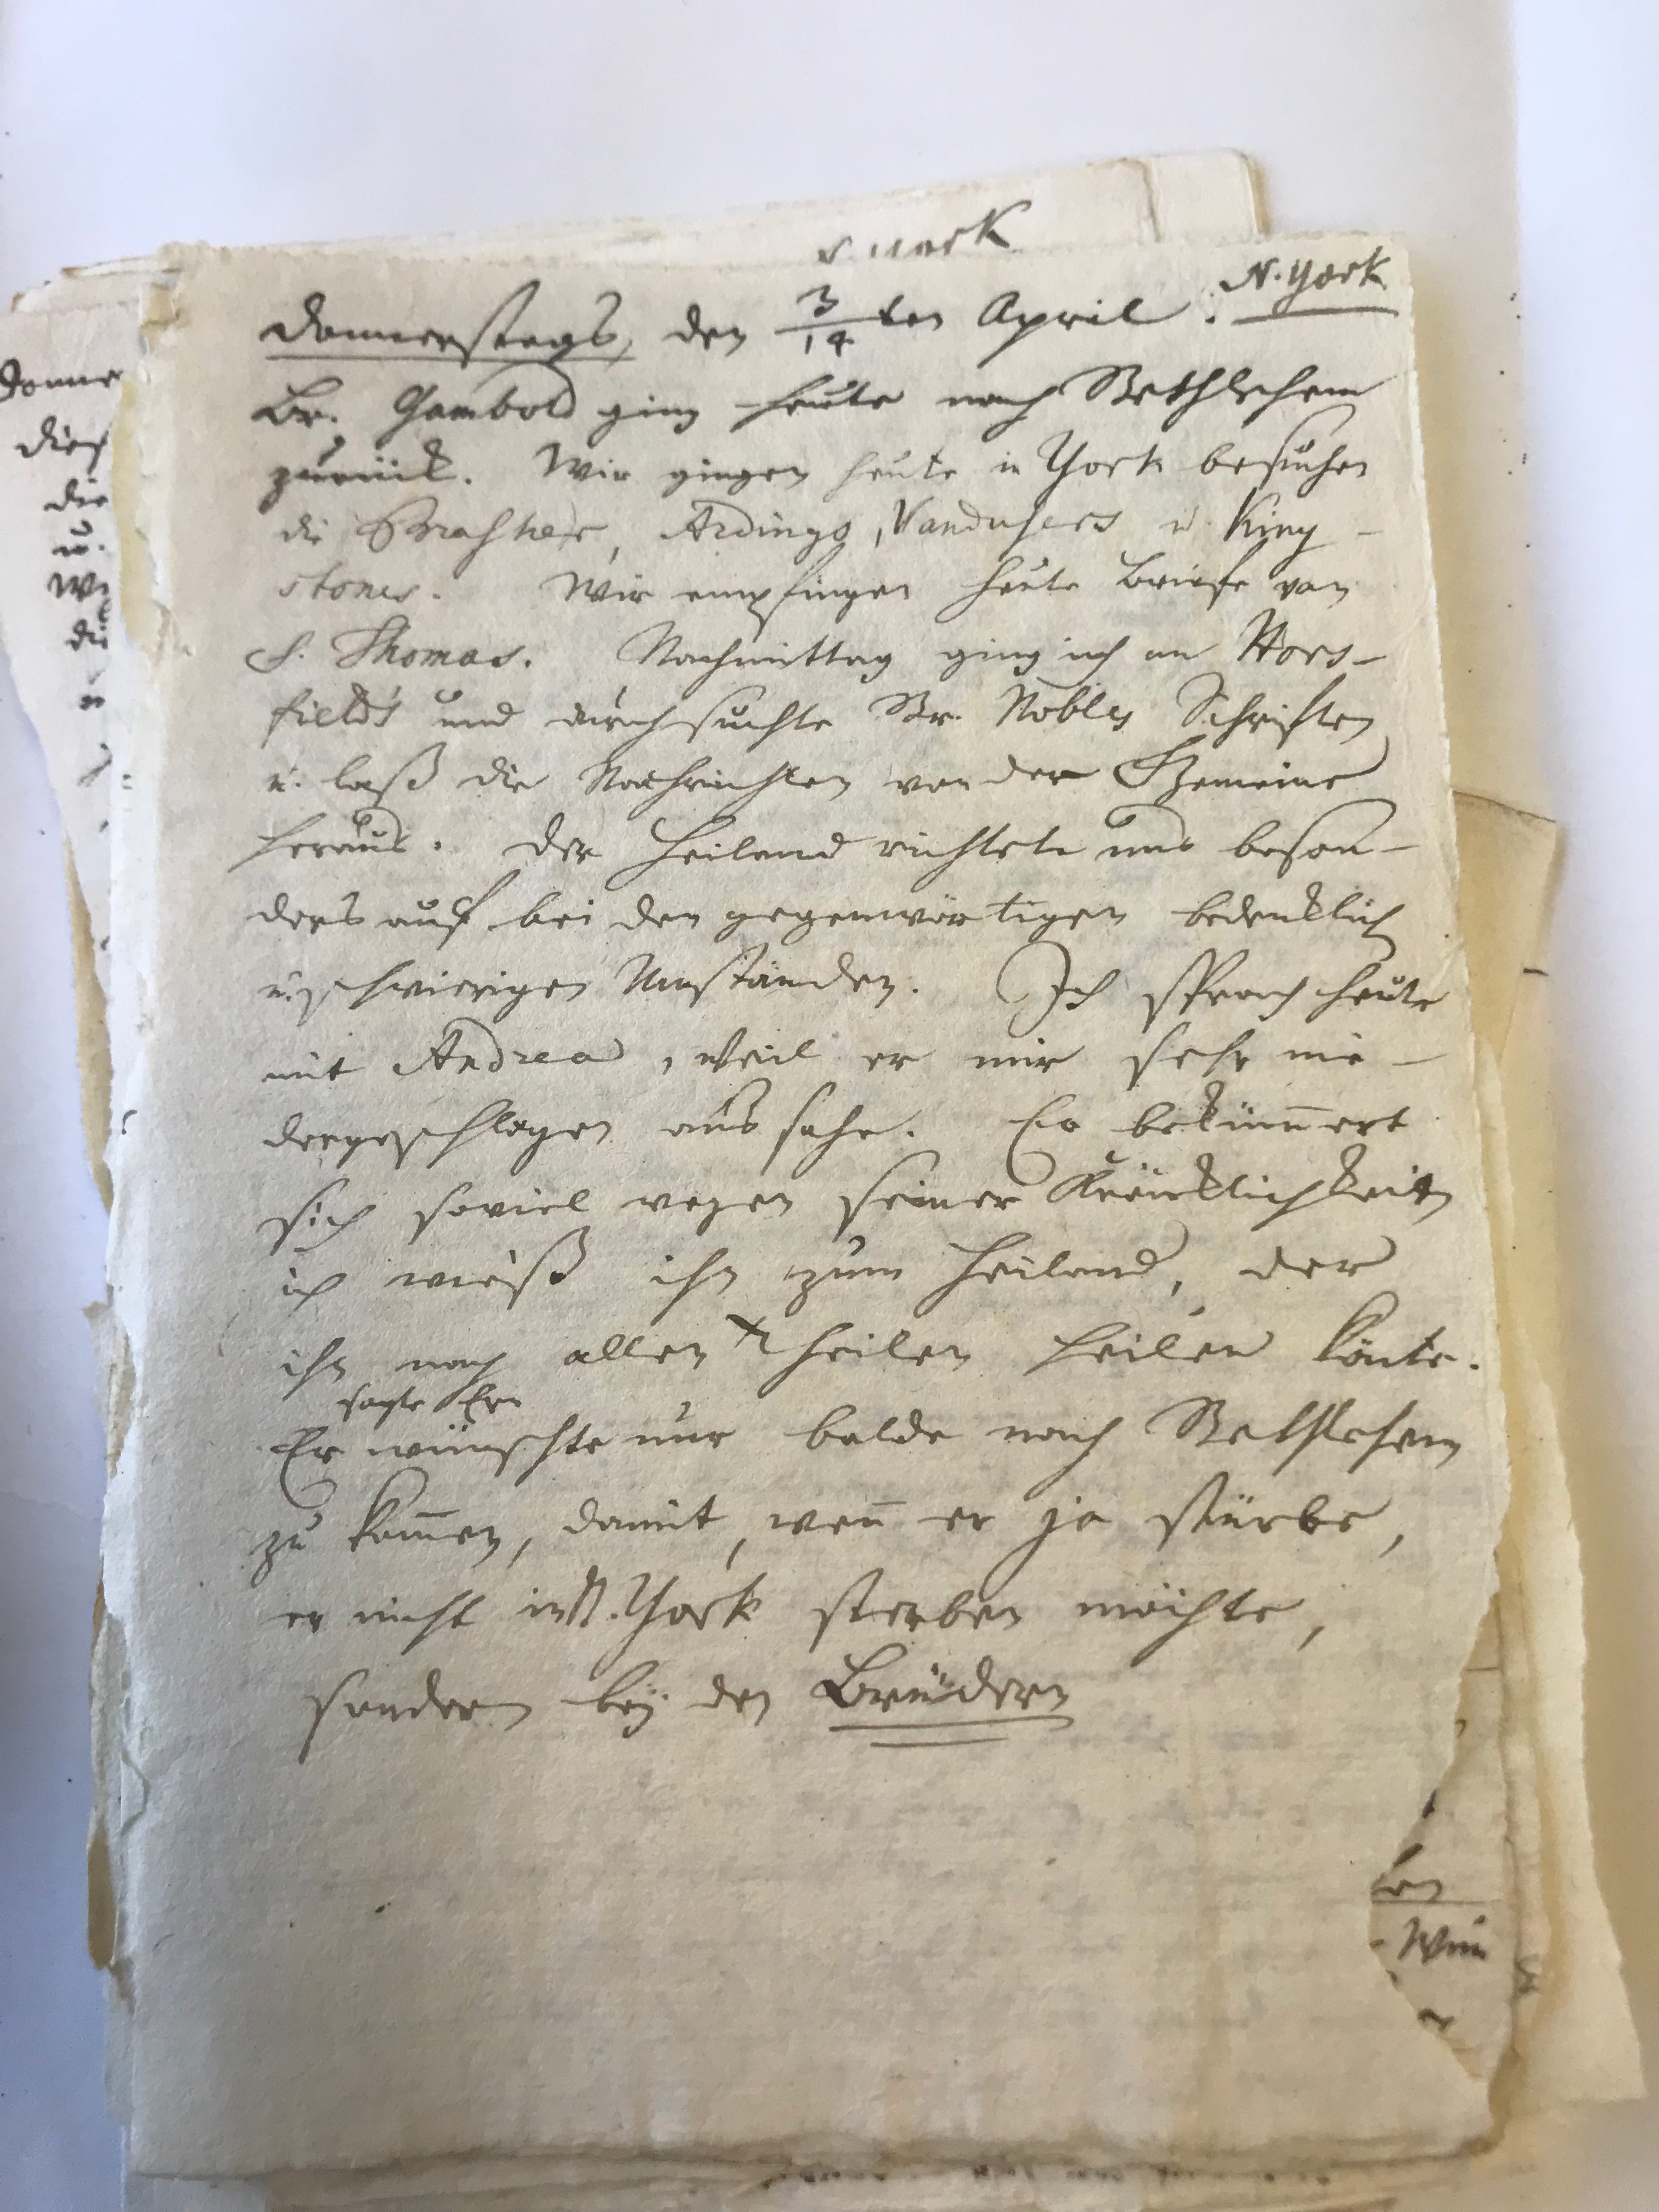 N. York
Donnerstags, den 3/14ten April.
Br. Gambold ging heute nach Bethlehem
zurück. Wir gingen heute in York besuchen
die Brashier, Ardings, Vandusers u. King-
stones. Wir empfingen heute Briefe von
S. Thomas. Nachmittag ging ich an Hors-
field's und durchsuchte Br. Nobles Schriften
u. laß die Nachrichten von der Gemeine
heraus. Der Heiland richtete uns beson-
ders auf bei den gegenwärtigen bedenklich
u. schwierigen Umständen. Ich sprach heute
mit Andrea, weil er mir sehr nie-
dergeschlagen aus sahe. Er bekümert
sich soviel wegen seiner Kräncklichkeiten
ich wieß ihn zum Heiland, der
ihn nach allen Theilen heilen könte.
sagte Er
Er wünschte nur balde nach Bethlehem
zu komen, damit, wen er ja stürbe,
er nicht in N. York sterben möchte,
sondern bey den Brüdern